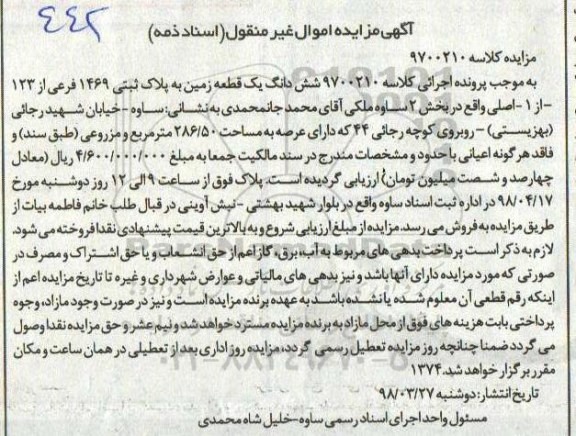 ۴۴۲
آگهی مزایده اموال غیر منقول (اسناد ذمه)
مزایده کلاسه ۹۷۰۰۲۱۰
به موجب پرونده اجرائی کلاسه ۹۷۰۰۲۱۰ شش دانگ یک قطعه زمین به پلاک ثبتی ۱۴۶۹ فرعی از ۱۲۳
-از ۱ -اصلی واقع در بخش ۲ ساوه ملکی آقای محمد جانمحمدی به نشانی: ساوه -خیابان شهید رجائی
(بهزیستی) -روبروی کوچه رجائی ۴۴ که دارای عرصه به مساحت ۲۸۶/۵۰ مترمربع و مزروعی (طبق سند) و
فاقد هر گونه اعیانی با حدود و مشخصات مندرج در سند مالکیت جمعا به مبلغ ۴/۶۰۰/۰۰۰/۰۰۰ ریال (معادل
چهارصد و شصت میلیون تومان) ارزیابی گردیده است. پلاک فوق از ساعت ۹ الی ۱۲ روز دوشنبه مورخ
۹۸/۰۴/۱۷ در اداره ثبت اسناد ساوه واقع در بلوار شهید بهشتی -نبش آوینی در قبال طلب خانم فاطمه بیات از
طریق مزایده به فروش می رسد. مزایده از مبلغ ارزیابی شروع و به بالاترین قیمت پیشنهادی نقدا فروخته می شود.
لازم به ذکر است پرداخت بدهی های مربوط به آب، برق، گاز اعم از حق انشعاب و یا حق اشتراک و مصرف در
صورتی که مورد مزایده دارای آنها باشد و نیز بدهی های مالیاتی و عوارض شهرداری و غیره تا تاریخ مزایده اعم از
اینکه رقم قطعی آن معلوم شده یا نشده باشد به عهده برنده مزایده است و نیز در صورت وجود مازاد، وجوه
پرداختی بابت هزینه های فوق از محل مازاد به برنده مزایده مسترد خواهد شد و نیم عشر و حق مزایده نقدا وصول
می گردد ضمنا چنانچه روز مزایده تعطیل رسمی گردد، مزایده روز اداری بعد از تعطیلی در همان ساعت و مکان
مقرر برگزار خواهد شد. ۱۳۷۴
تاریخ انتشار: دوشنبه ۹۸/۰۳/۲۷
مسئول واحد اجرای اسناد رسمی ساوه-خلیل شاه محمدی